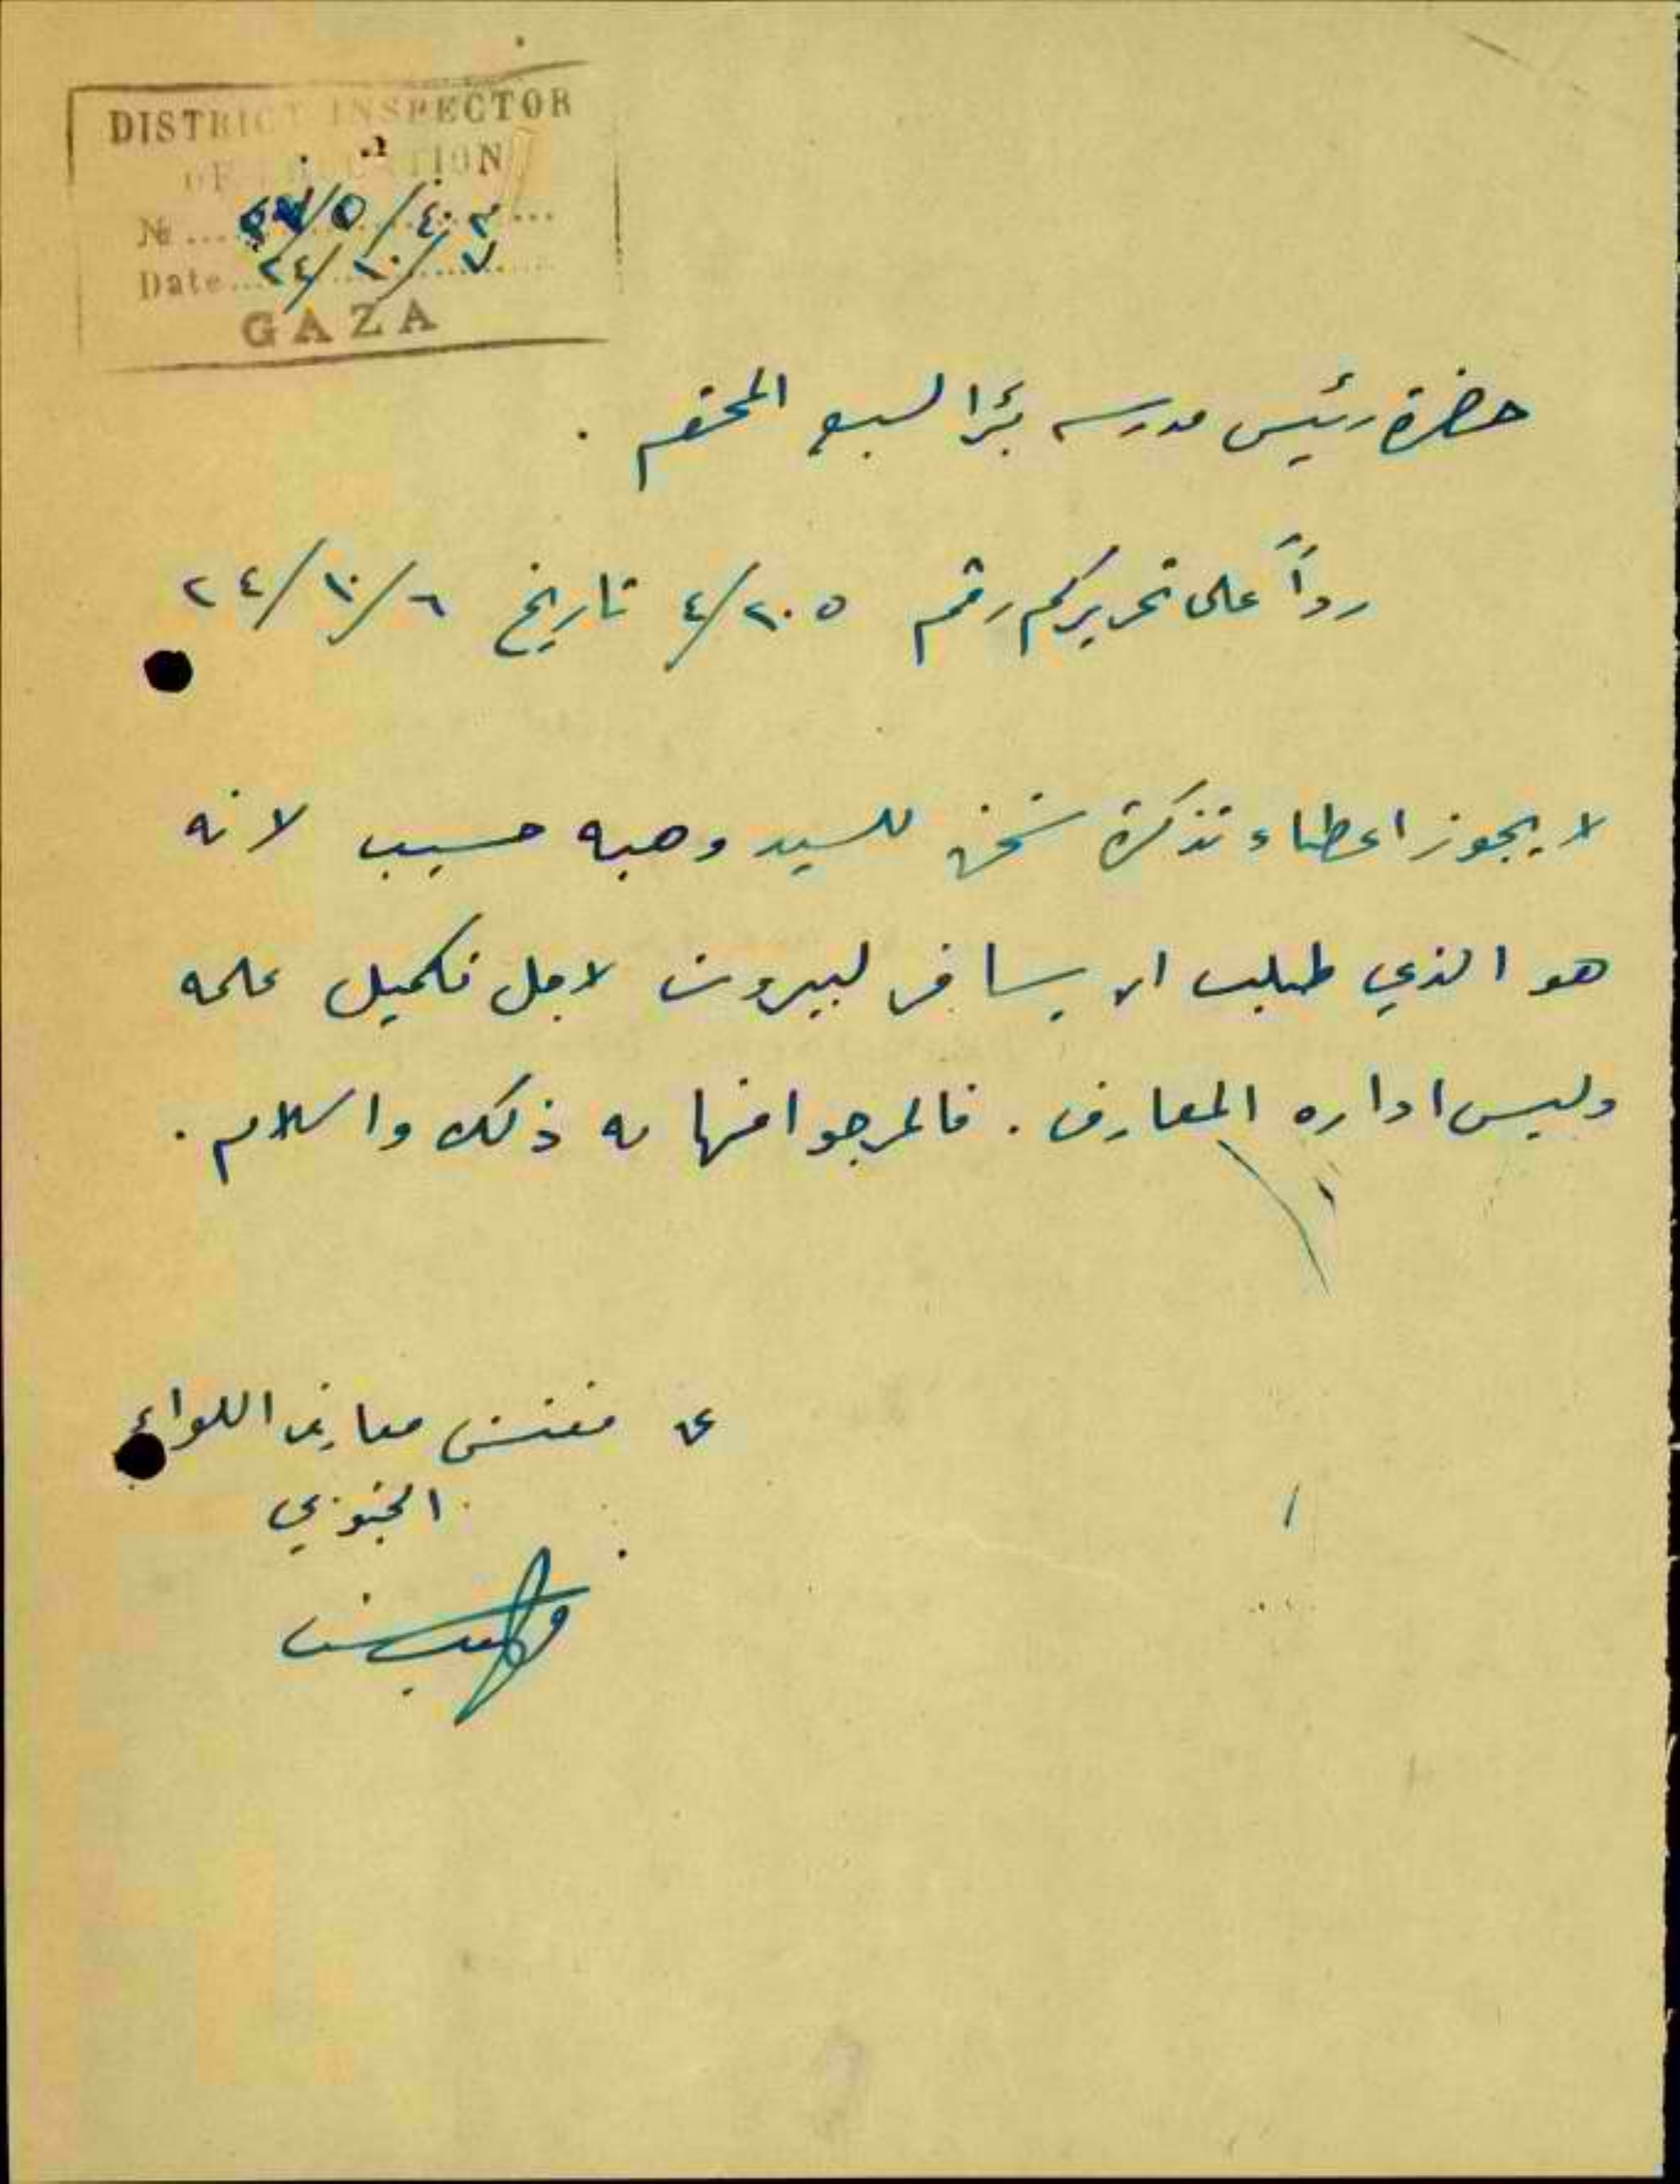 DISTRICT INSPECTOR
OF EDUCATION
№ ... /٥/٤٠٣
Date ٧/١٠/٢٤
GAZA
حضرة رئيس مدرسه بئر السبع المحترم .
رداً على تحريركم رقم ٤/٢٠٥ تاريخ ٦/١٠/٢٤
لا يجوز اعطاء تذكرة شحن للسيد وهبه حسيب لانه
هو الذي طلب ان يسافر لبيروت لاجل تكميل علمه
وليس اداره المعارف . فالمرجو افهامه ذلك والسلام .
عن مفتش معارف اللواء
الجنوبي